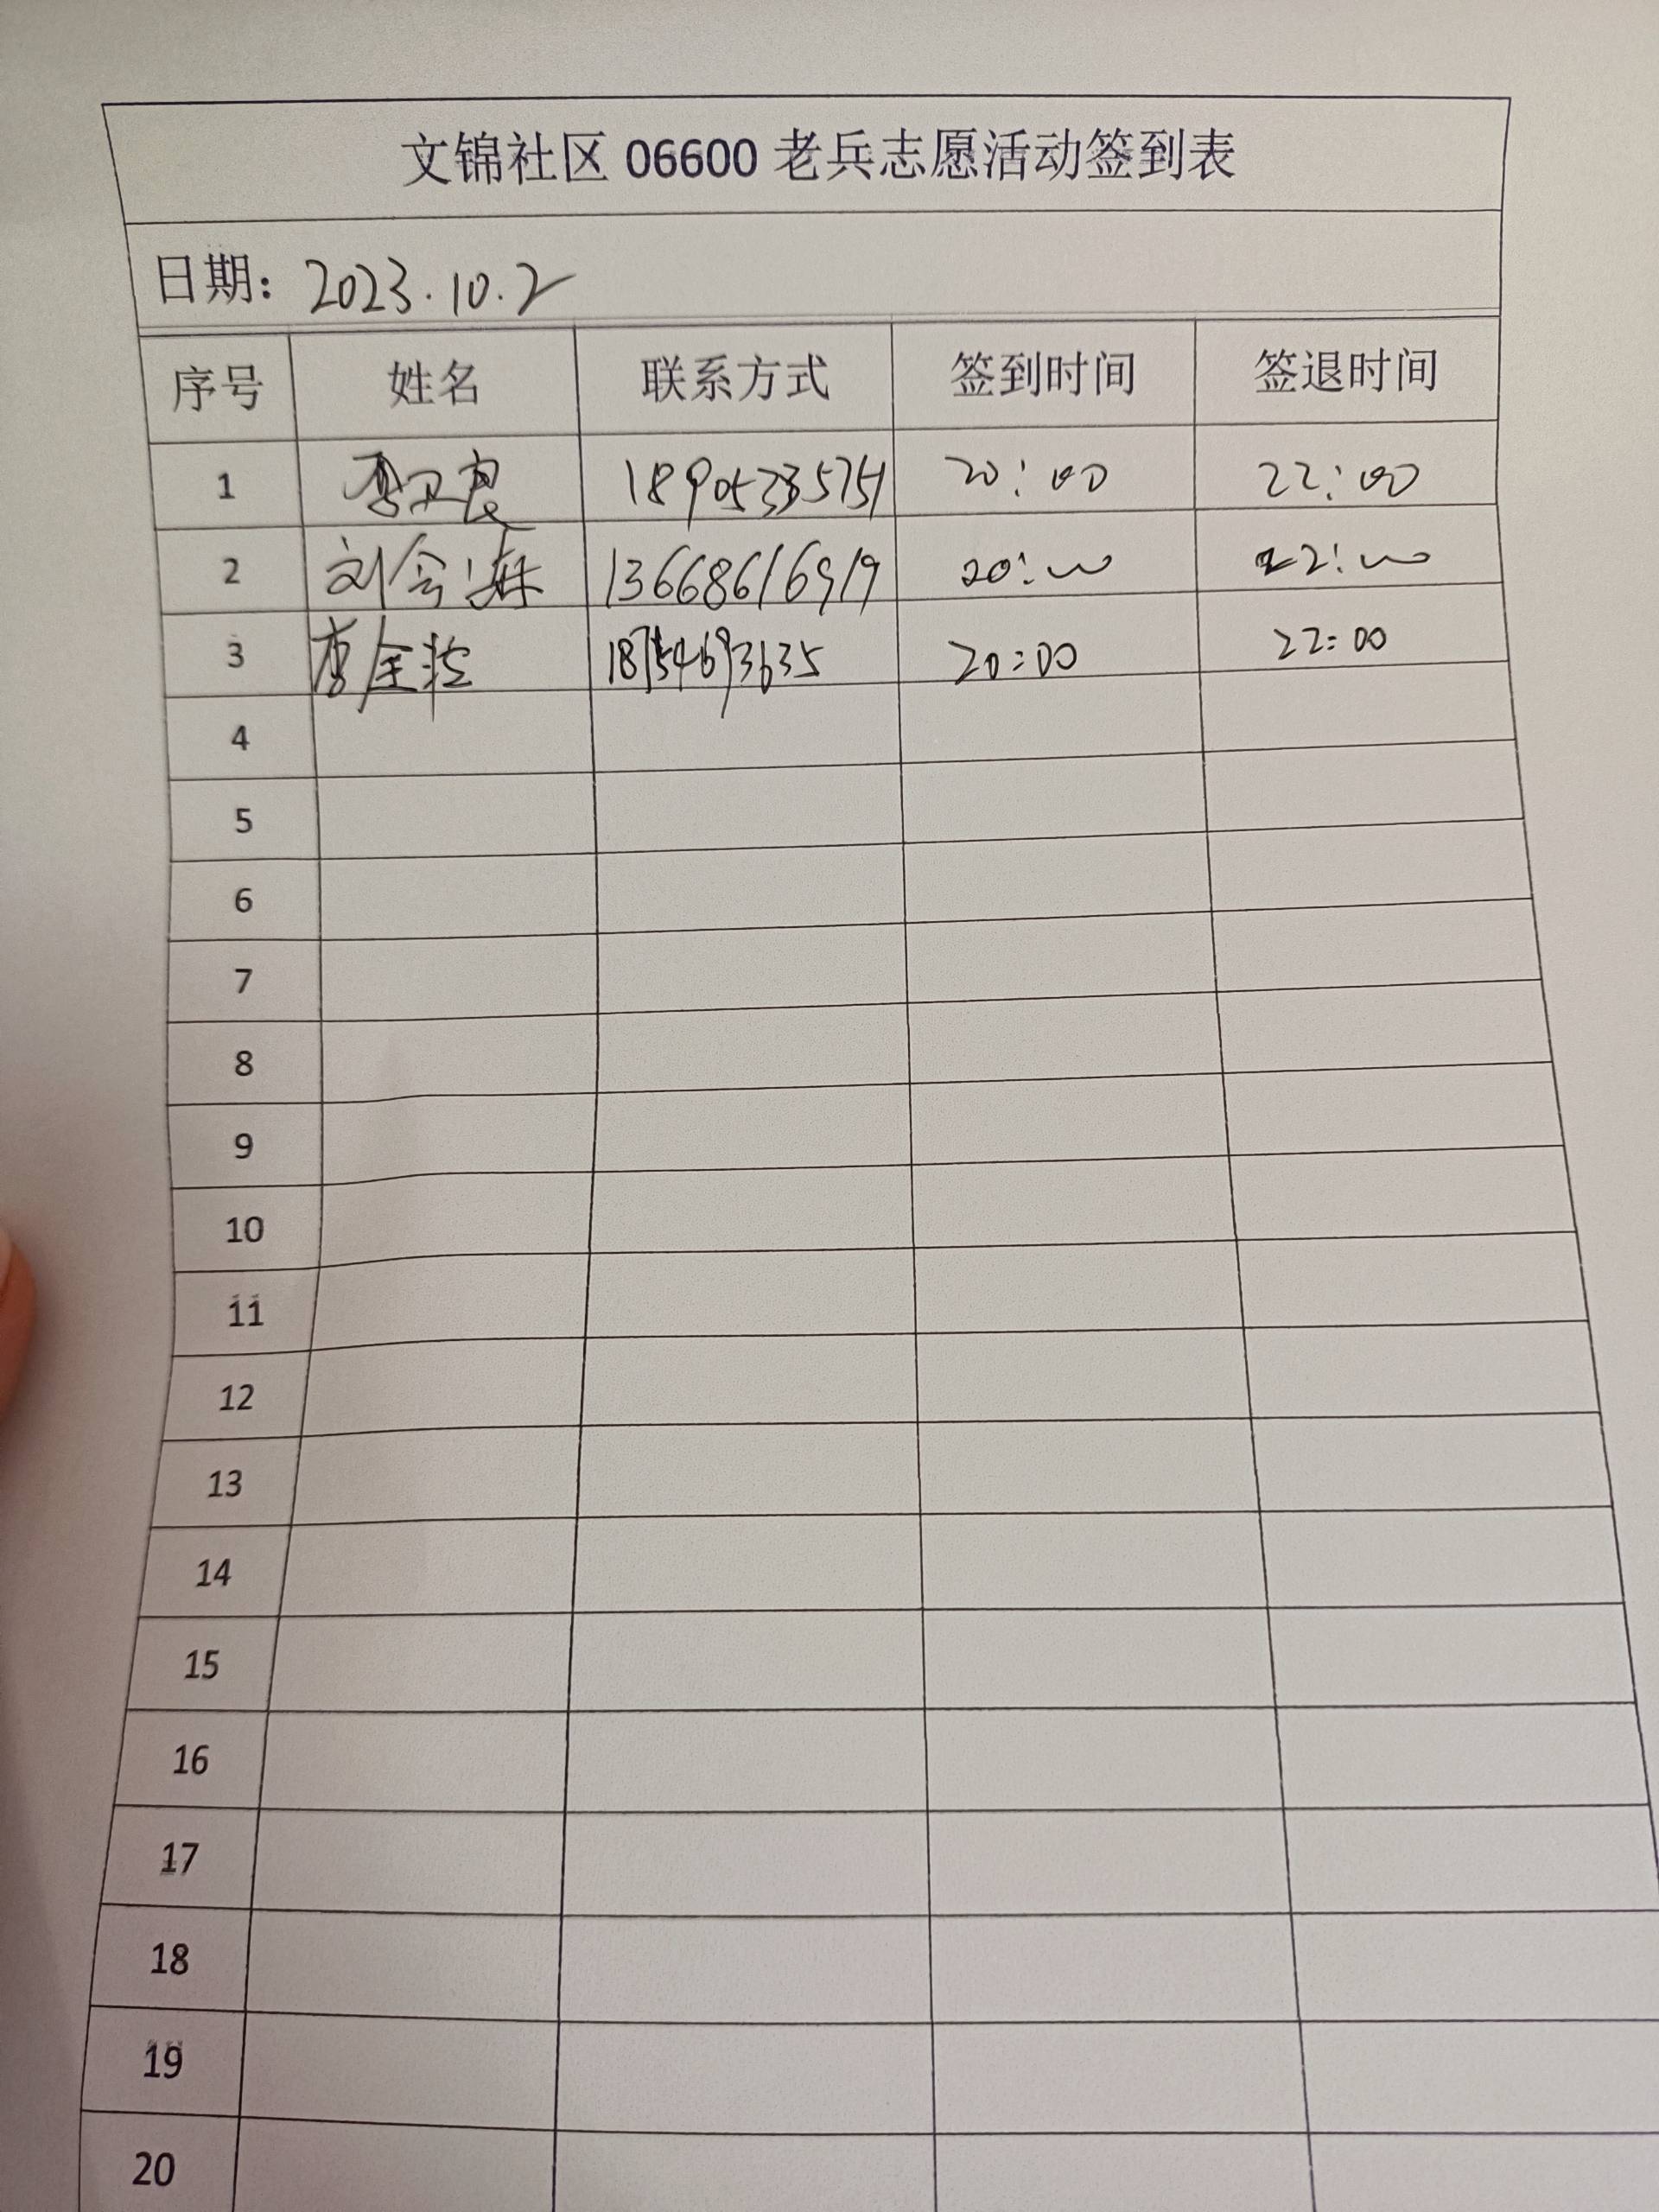 文锦社区 06600 老兵志愿活动签到表
日期: 2023.10.2
序号 姓名 联系方式 签到时间 签退时间
1 20:00 22:00
2 刘会 13668616919 20:00 22:00
3 20:00 22:00
4
5
6
7
8
9
10
11
12
13
14
15
16
17
18
19
20